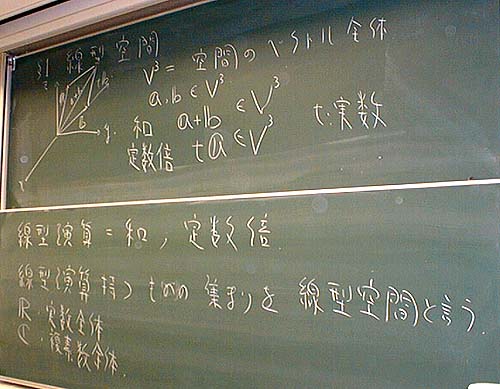 §1 線型空間
V³ = 空間のベクトル全体
a, b ∈ V³
和 a+b ∈ V³
定数倍 ta ∈ V³ t:実数
z
a
a+b
b
y
x
線型演算 = 和, 定数倍.
線型演算持つものの集まりを線型空間と言う.
ℝ:定数全体
ℂ:複素数全体.